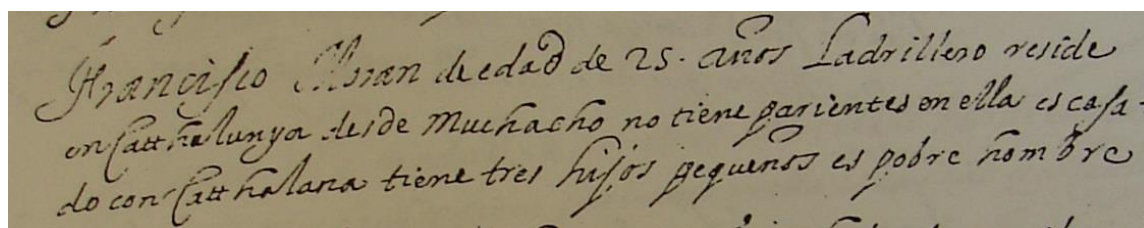 Francisco Moran de edad de 25. años Ladrillero reside
en Catthalunya desde Muchacho no tiene parientes en ella es casa-
do con Catthalana tiene tres hijos pequeños es pobre hombre